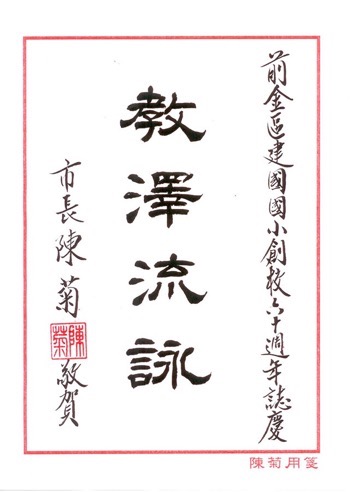 前金區建國國小創校六十週年誌慶
教澤流詠
市長陳菊敬賀
陳菊
陳菊用箋